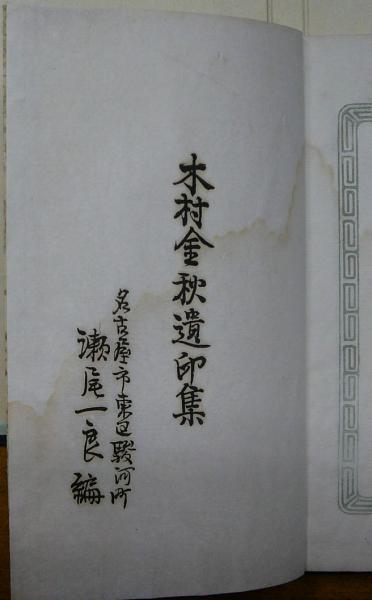 木村金秋遺印集
名古屋市東区駿河町
瀬尾一良編